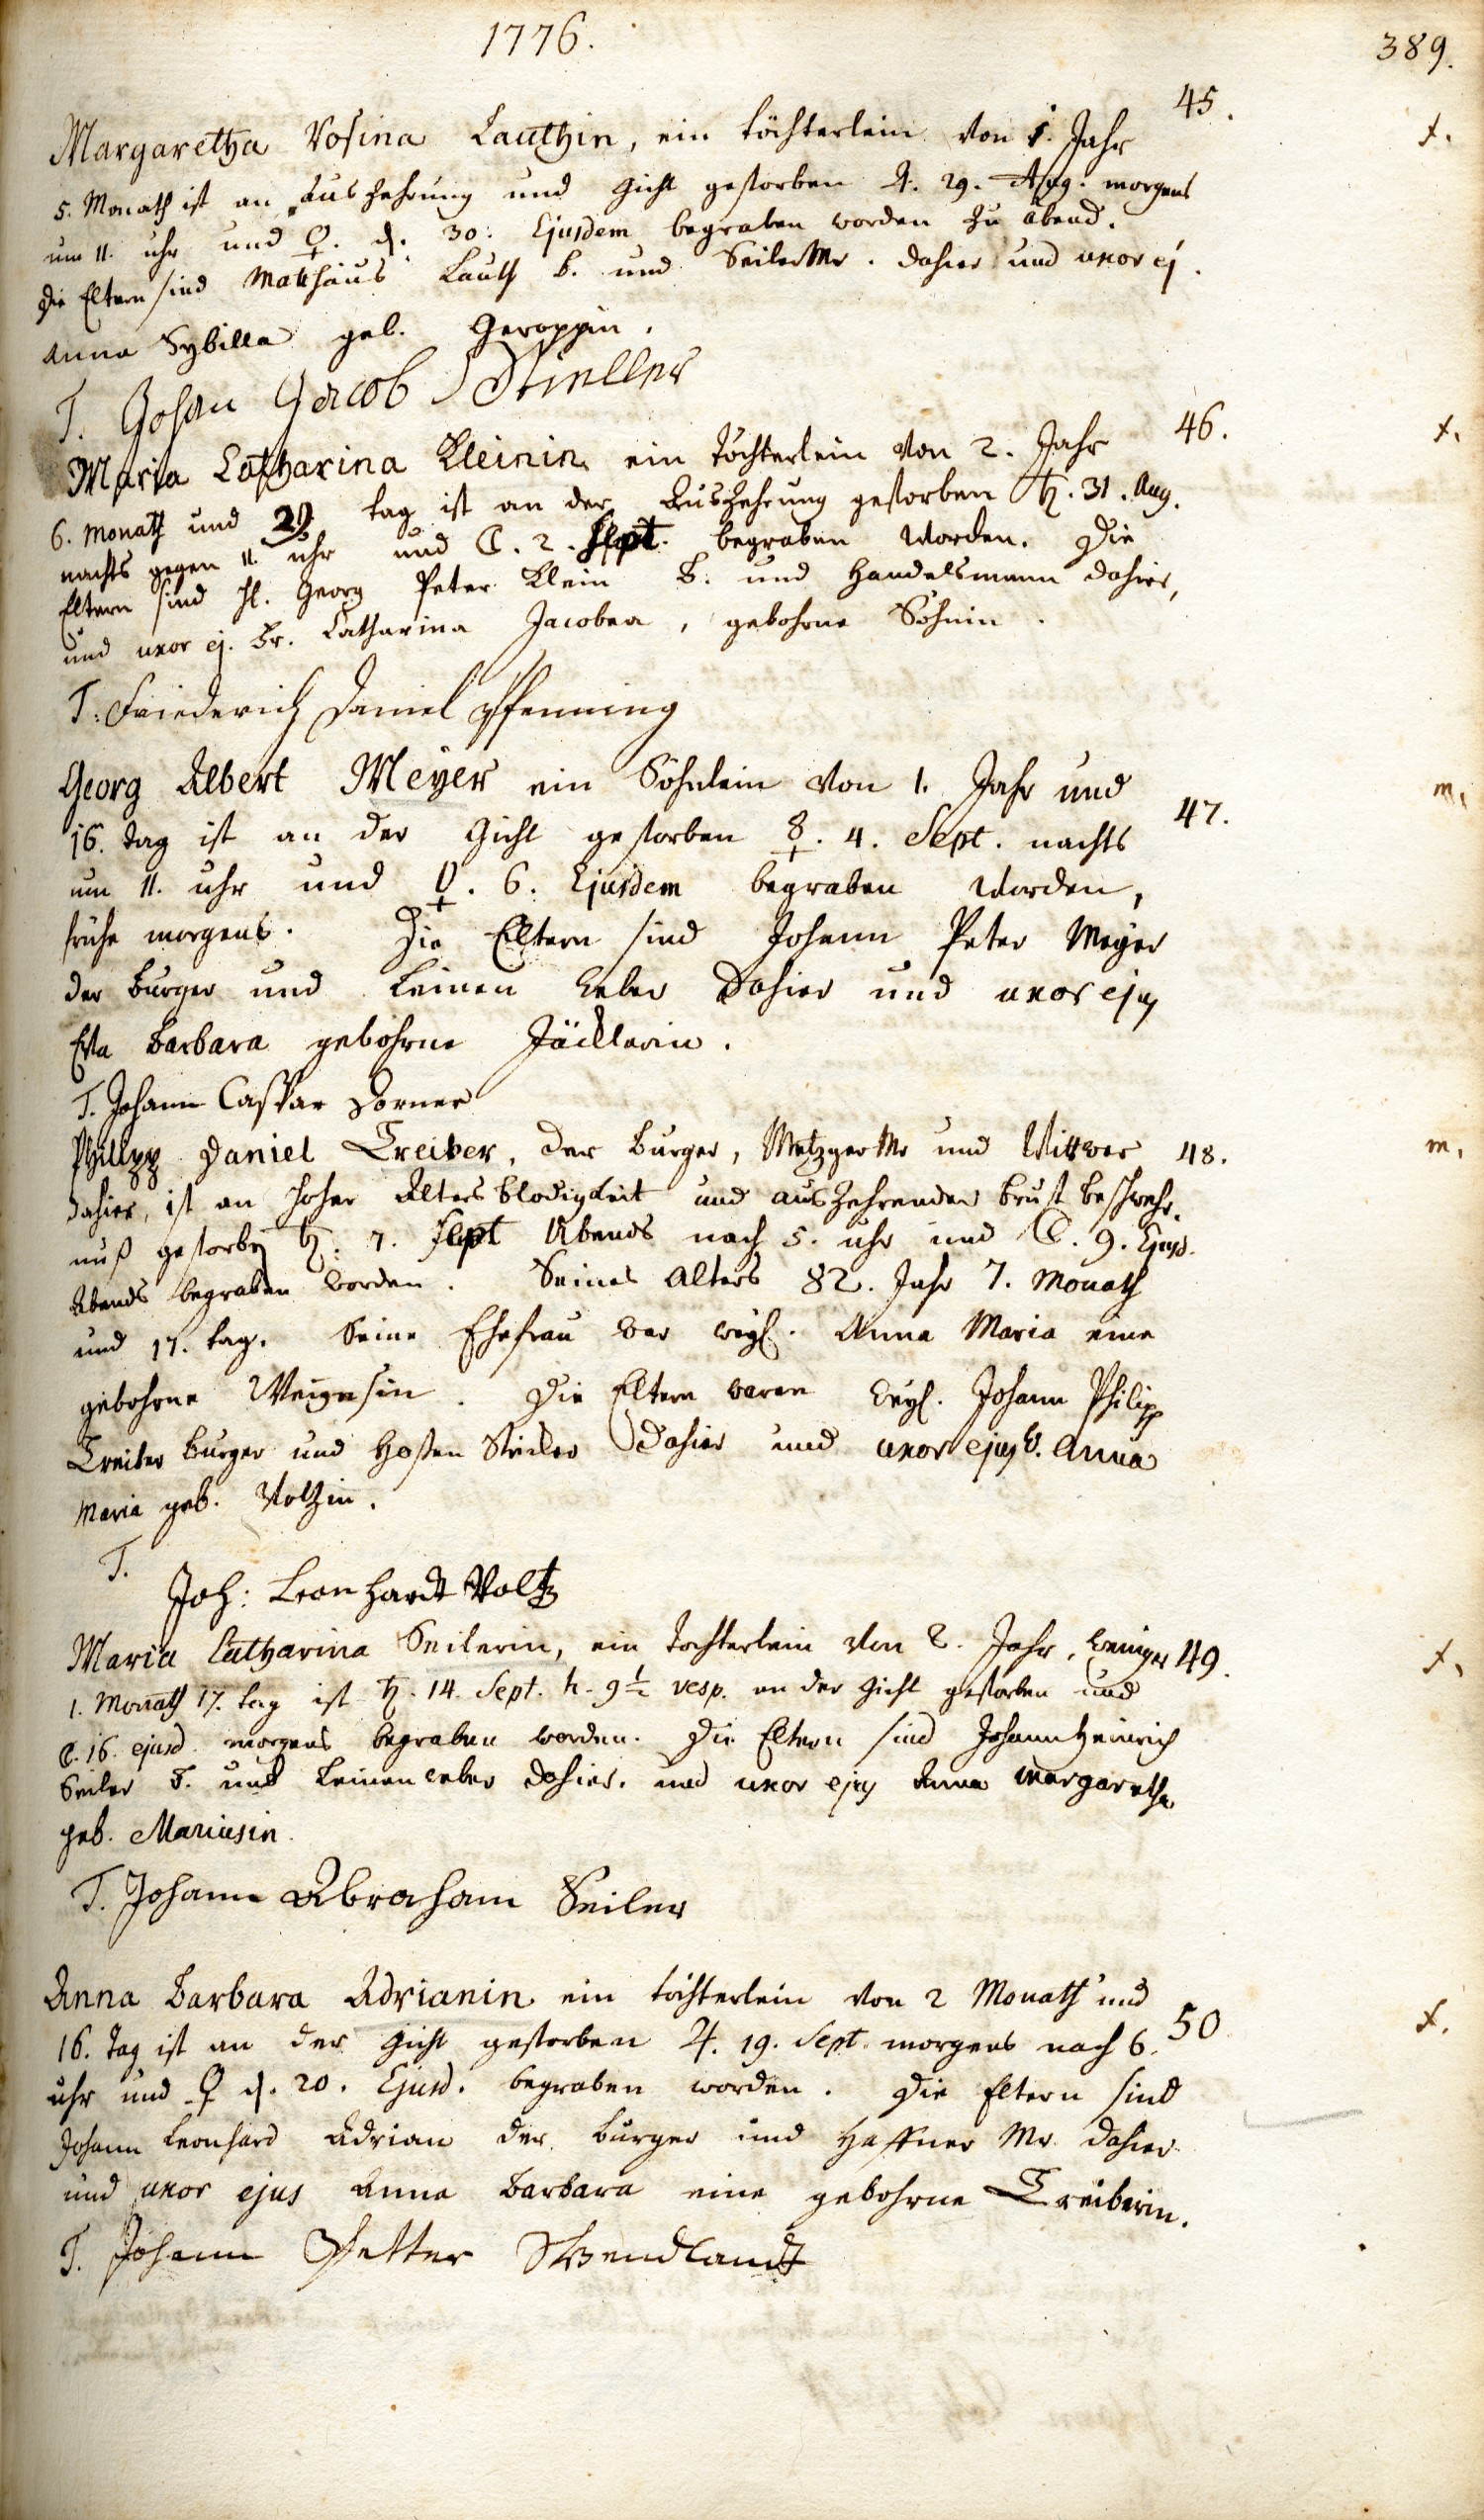 1776.
389.
45.
Margaretha Rosina Lauthin, ein töchterlein von 1. Jahr
f.
5. Monath ist an Auszehrung und Gicht gestorben ♃. 29. Aug. morgens
um 11. uhr und ♀. d. 30. Ejusdem begraben worden zu abend.
Die Eltern sind Matthäus Lauth b. und Seiler Mr. dahier und uxor ej.
Anna Sybilla geb. Geroppin.
T. Johan Jacob
46.
Maria Catharina Kleinin ein Töchterlein von 2. Jahr
f.
6. Monath und 29 tag ist an der Auszehrung gestorben ♄. 31. Aug.
nachts gegen 11. uhr und ☾. 2. Sept. begraben worden. Die
Eltern sind H. Georg Peter Klein b. und Handelsmann dahier,
und uxor ej. Fr. Catharina Jacobea, gebohrne Söhnin.
T. Friederich Daniel Pfenning
Georg Albert Meyer ein Söhnlein von 1. Jahr und
47.
m.
16. tag ist an der Gicht gestorben ☿. 4. Sept. nachts
um 11. uhr und ♀. 6. Ejusdem begraben worden,
frühe morgens. Die Eltern sind Johann Peter Meyer
der burger und Leinen Weber dahier und uxor ejus
Eva Barbara gebohrne Jäcklerin.
T. Johann Caspar Dorner
Philipp Daniel Treiber, der burger, Metzger Mr und Wittwer
48.
m.
dahier, ist an hoher Altersblödigkeit und auszehrender brust beschwehr-
nuß gestorben ♄. 7. Sept Abends nach 5. uhr und ☾. 9. Ejusd.
Abends begraben worden. Seines Alters 82. Jahr 7. Monath
und 17. tag. Seine Ehefrau war weyl. Anna Maria eine
gebohrne. Die Eltern waren weyl. Johann Philipp
Treiber burger und Hosen Stricker dahier und uxor ejus Anna
Maria geb. Voltzin.
T.
Joh: Leonhardt Voltz
Maria Catharina Seilerin, ein Töchterlein von 2. Jahr, weniger
49.
f.
1. Monath 17. tag ist ♄. 14. Sept. h. 9½ vesp. an der Gicht gestorben und
☾. 16. ejusd. morgens begraben worden. Die Eltern sind Johann Heinrich
Seiler b. und Leinenweber dahier. und uxor ejus Anna Margaretha
geb. Mariusin.
T. Johann Abraham Seiler
Anna Barbara Adrianin ein töchterlein von 2 Monath und
50
f.
16. Tag ist an der Gicht gestorben ♃. 19. Sept. morgens nach 6.
uhr und ♀ d. 20. Ejusd. begraben worden. Die Eltern sind
Johann Leonhard Adrian der burger und Haffner Mr. dahier
und uxor ejus Anna Barbara eine gebohrne Treiberin.
T. Johann Petter Wendlandt